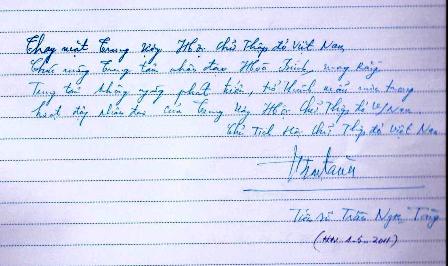 Thay mặt Trung ương Hội Chữ Thập đỏ Việt Nam
Chúc mừng Trung tâm nhân đạo Hòa Bình, mong rằng
Trung tâm không ngừng phát triển, trở thành mẫu mực trong
hoạt động nhân đạo của Trung ương Hội Chữ Thập đỏ V/Nam
Chủ Tịch Hội Chữ Thập đỏ Việt Nam
Tiến sĩ Trần Ngọc Tăng